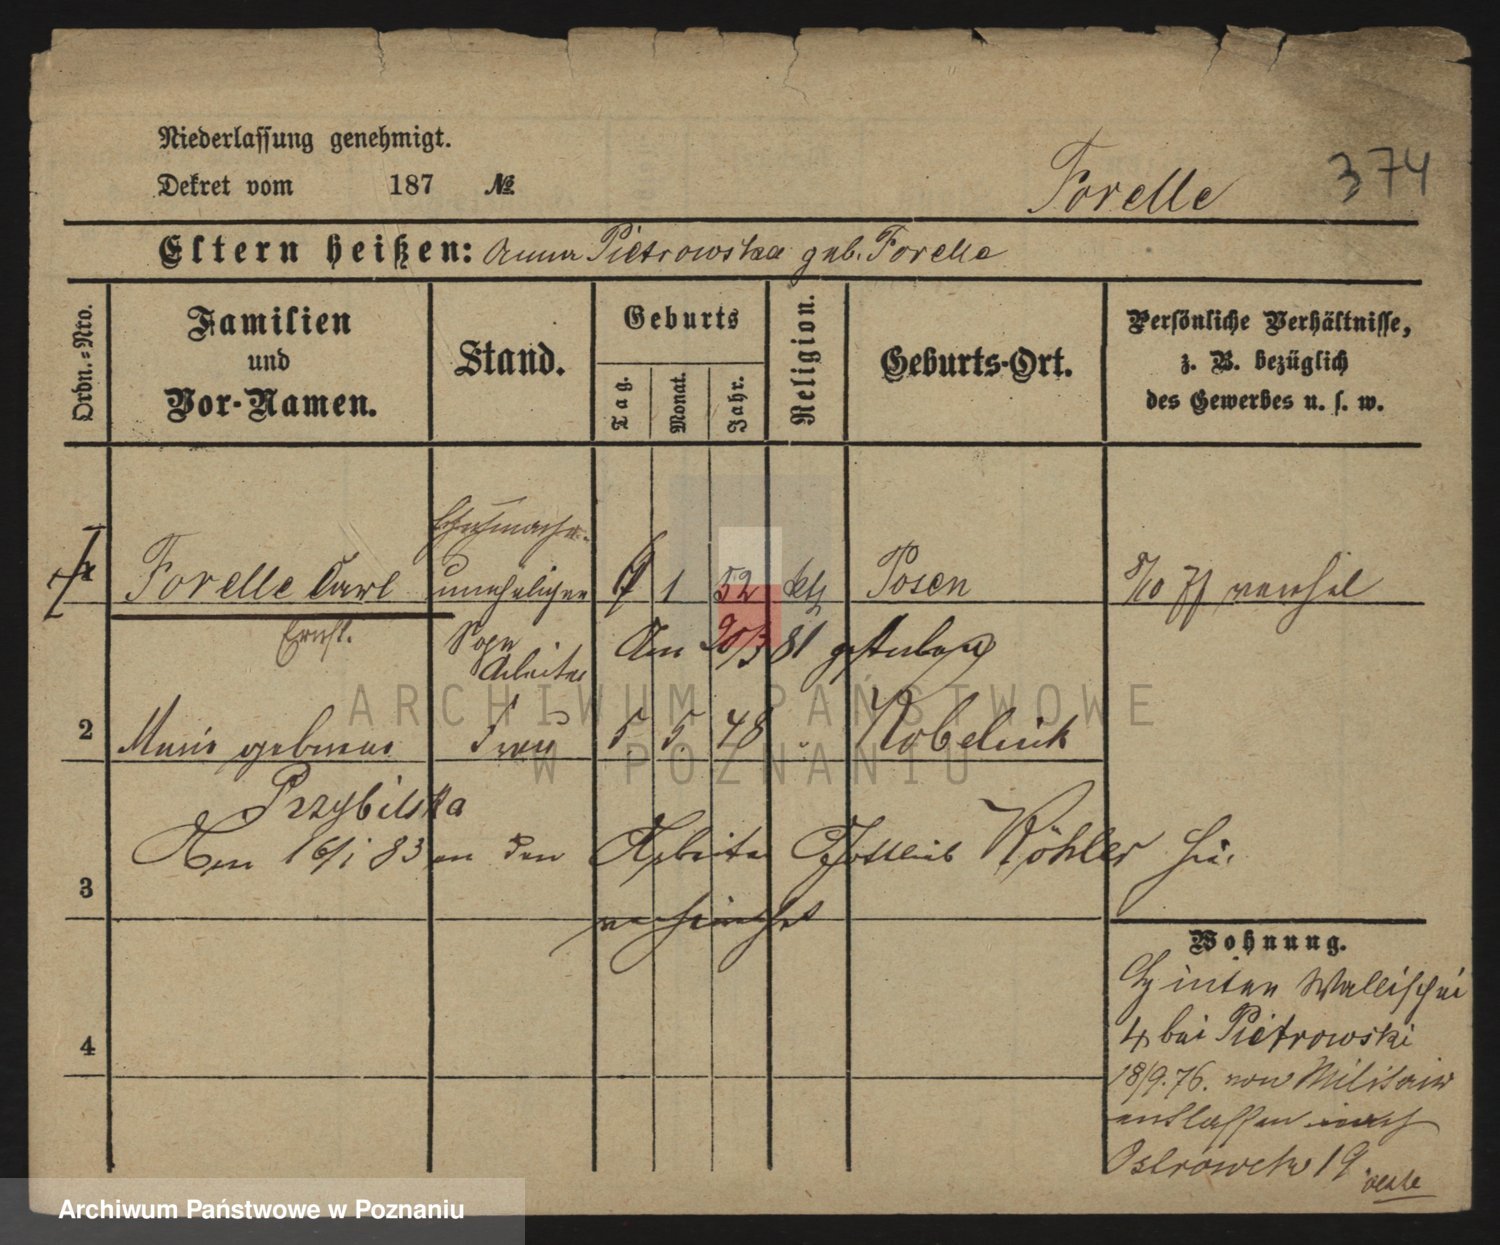 Niederlassung genehmigt.
Dekret vom 187 №
Forelle 374
Eltern heißen: Anna Pietrowska geb. Forelle
Ordn.-Nro.
Familien und Vor-Namen.
Stand.
Geburts
Tag.
Monat.
Jahr.
Religion.
Geburts-Ort.
Persönliche Verhältnisse, z. B. bezüglich des Gewerbes u. s. w.
Schuhmacher
Forelle Carl unehelicher 1 52 kth Posen 8/10 77 verehel
Ernst. Sohn Am 20/3 81 gestorben
Arbeiter
2 Marie geborene Frau 5. 5. 48 Kobelnik
Przybilska
Am 16/1 83 an den Arbeiter Gottlieb Köhler hier
3 verheirathet
Wohnung.
Hinter Wallischei
4 bei Pietrowski
4
18/9. 76. vom Militair
entlassen nach
Ostrowek 19
ARCHIWUM PAŃSTWOWE
W POZNANIU
Archiwum Państwowe w Poznaniu